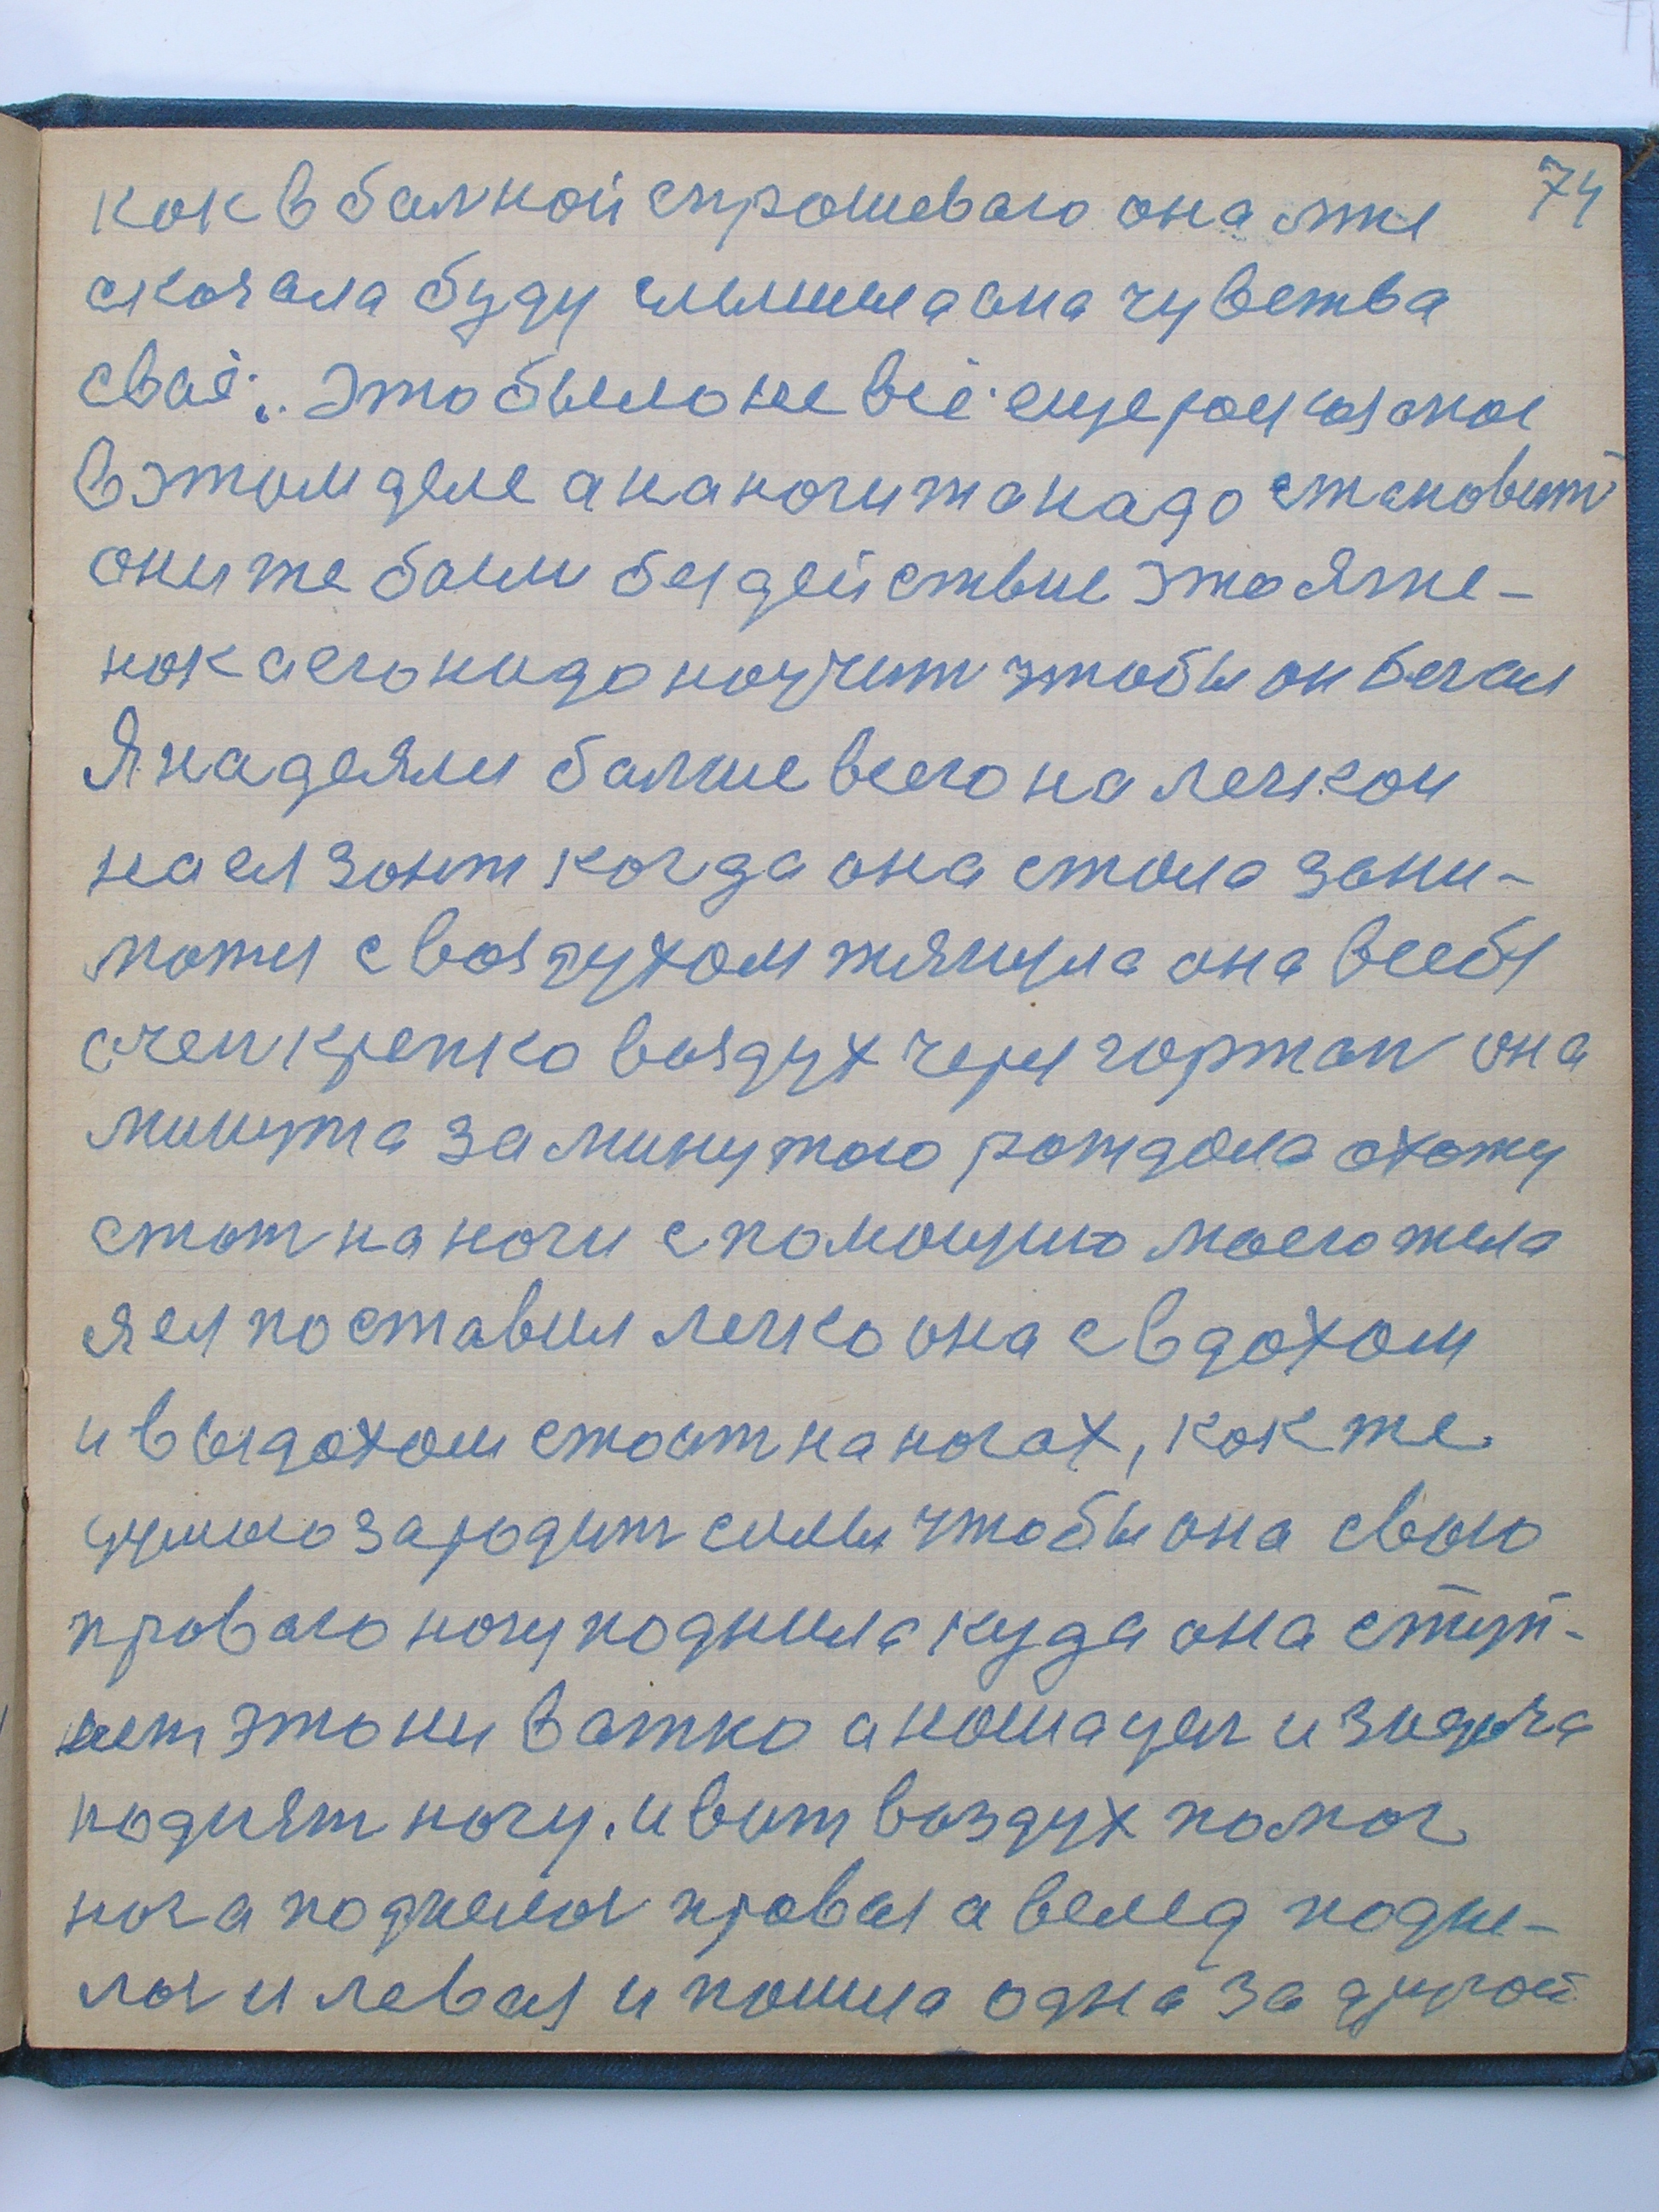 74
кок в балной спрошеваю она мне
скозала буду слышила она чувства
сваё. Это было не всё еще росказоное
в этом деле а на ноги то надо становит
они же были бездействие это Яже-
нок а его надо научит чтобы он бегал
Я надеялся балше всего на легкои
на ея зонт когда она стола зани-
мотся с воздухом тянула она в себя
очен крепко воздух через гортан она
минута за минутою рождола охоту
стат на ноги с помощию моего тела
я ея поставил легко она с вдохом
и выдохом стоит на ногах, кок же
думаю зародит силы чтобы она свою
провою ногу подняла куда она ступ-
нет это ни ватно а ноша цел и задача
поднят ногу. и вот воздух помог
нога поднелоя провая а вслед подне-
лоя и левая и пошла одна за другой